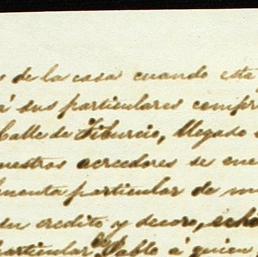 s de la casa cuando esta
á sus particulares
Calle de Tiburcio, llegado
nuestros acreedores se
cuenta particular de
su credito y decoro,
particular, Pablo á quien